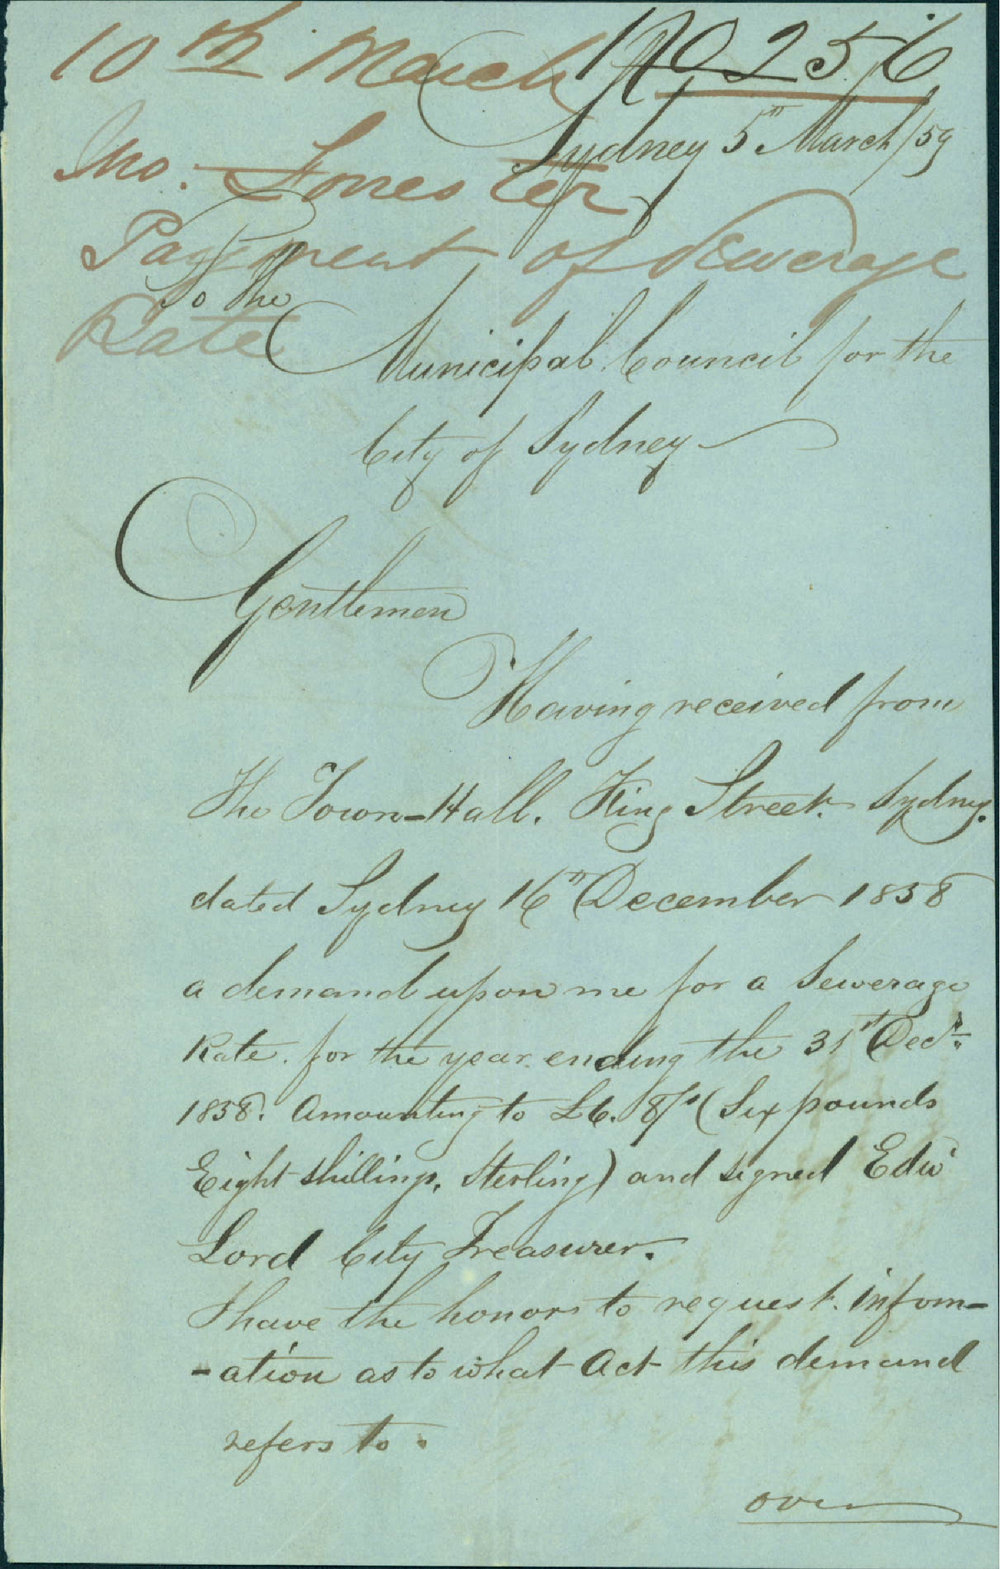 10th March No 256
Sydney 5th March/59
Jno.
Payment of Sewerage
Rate
To the
Municipal Council for the
City of Sydney
Gentlemen
Having received from
The Town-Hall. King Street. Sydney.
dated Sydney 16th December 1858
a demand upon me for a Sewerage
Rate. for the year ending the 31st Decr.
1858. Amounting to £6. 8/s (Six pounds
Eight shillings, Sterling) and signed Edwd
Lord City Treasurer.
I have the honor to request. inform-
-ation as to what Act this demand
refers to.
over